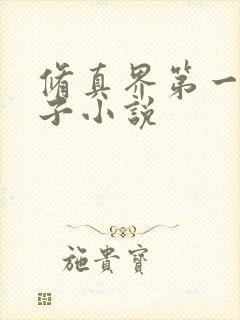 脩真界第一
子小說
施貴寶